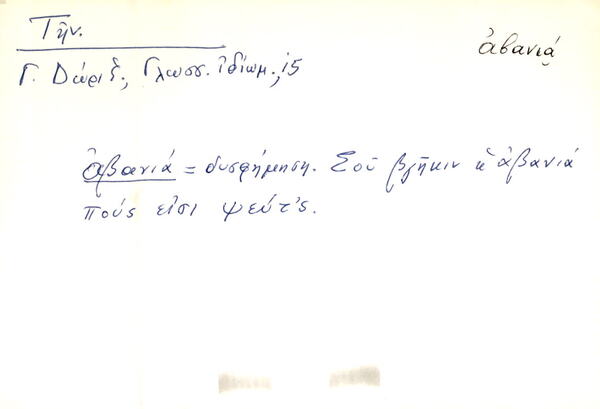 Τῆν.
ἀβανιά
Γ. Δώριζ, Γλωσσ. ἰδίωμ., 15
ἀβανιά = δυσφήμηση. Σοῦ βγῆκιν ἀβανιά
πούς εἶσι ψεύτ'ς.